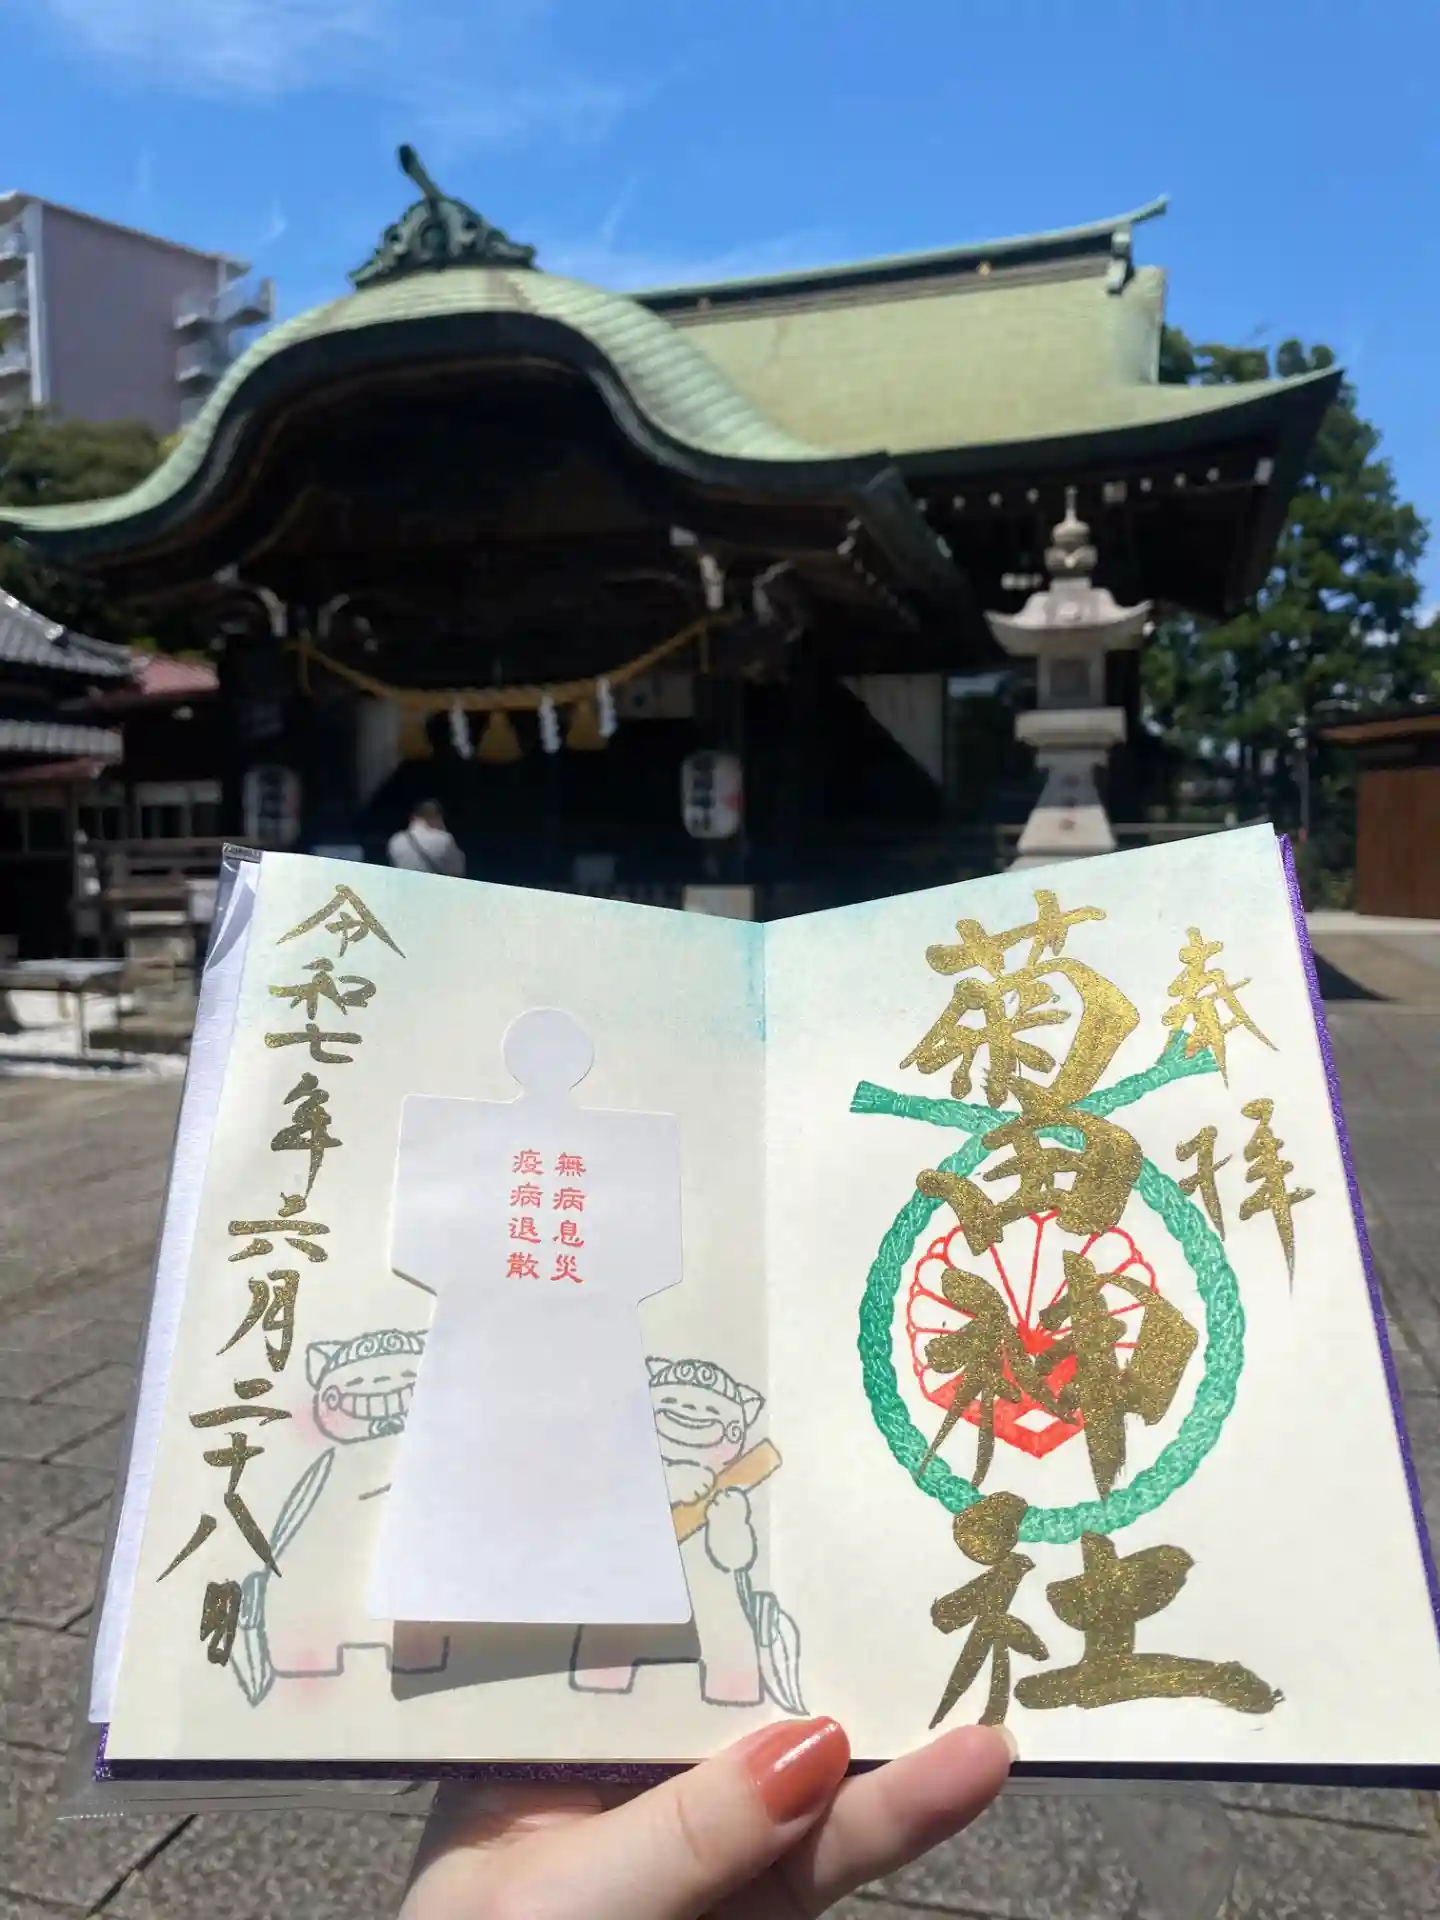 奉拝
菊田神社
無病息災
疫病退散
令和七年六月二十八日